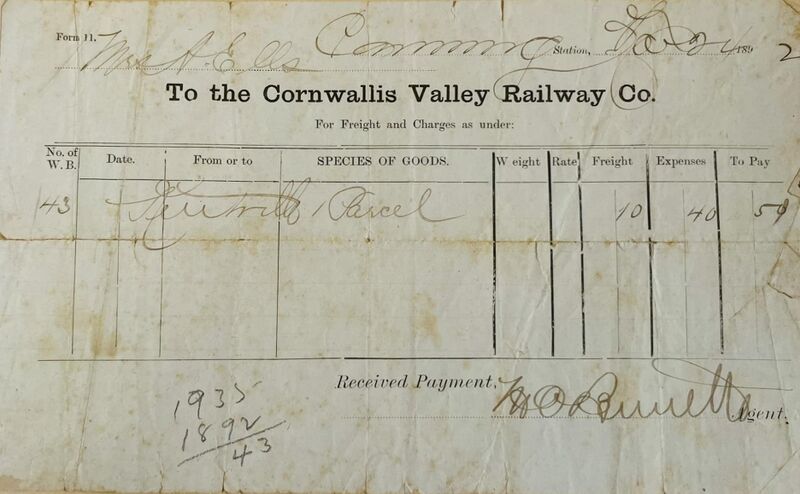 Form 11.
Canning Station, Nov 24 1892
Mrs A. Ells
To the Cornwallis Valley Railway Co.
For Freight and Charges as under:
No. of W. B. Date. From or to SPECIES OF GOODS. Weight Rate Freight Expenses To Pay
43 Kentville 1 Parcel 10 40 50
Received Payment,
Agent.
1935
1892
43